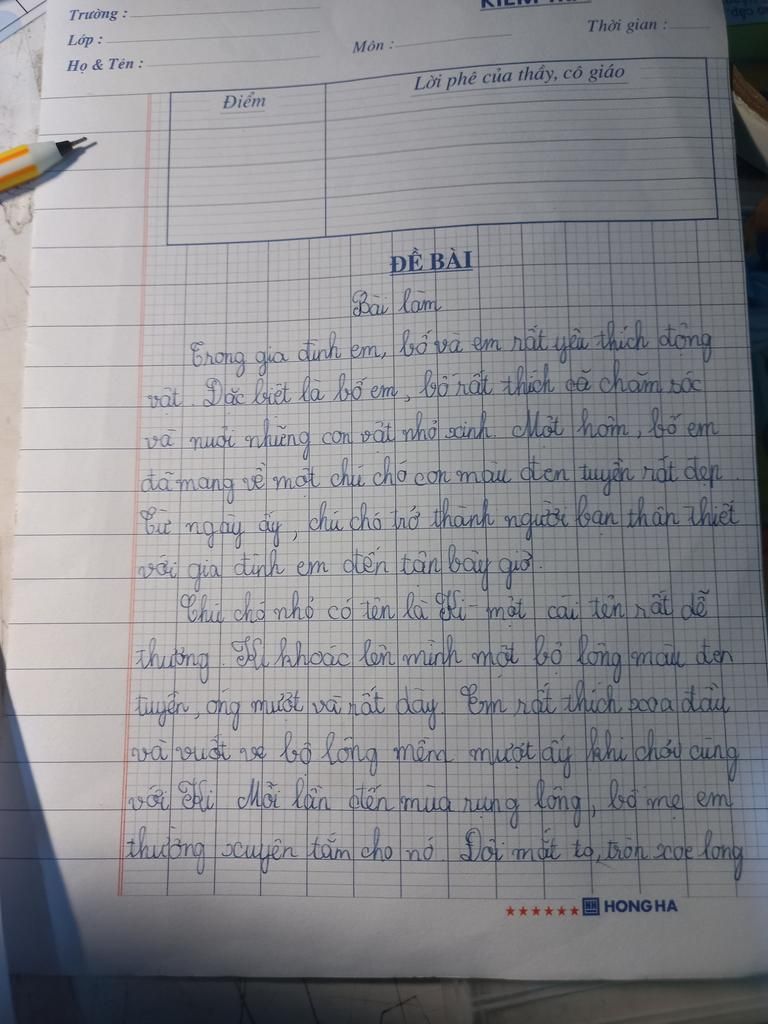 Trường :
Lớp :
Họ & Tên :
Môn :
Thời gian :
Điểm
Lời phê của thầy, cô giáo
ĐỀ BÀI
Bài làm
Trong gia đình em, bố và em rất yêu thích động
vật. Đặc biệt là bố em, bố rất thích chăm sóc
và nuôi những con vật nhỏ xinh. Một hôm, bố em
đã mang về một chú chó con màu đen tuyền rất đẹp.
Từ ngày ấy, chú chó trở thành người bạn thân thiết
với gia đình em đến tận bây giờ.
Chú chó nhỏ có tên là Ki - một cái tên rất dễ
thương. Ki khoác lên mình một bộ lông màu đen
tuyền, óng mượt và rất dày. Em rất thích xoa đầu
và vuốt ve bộ lông mềm mượt ấy khi chơi cùng
với Ki. Mỗi lần đến mùa rụng lông, bố mẹ em
thường xuyên tắm cho nó. Đôi mắt to, tròn xoe long
HONG HA